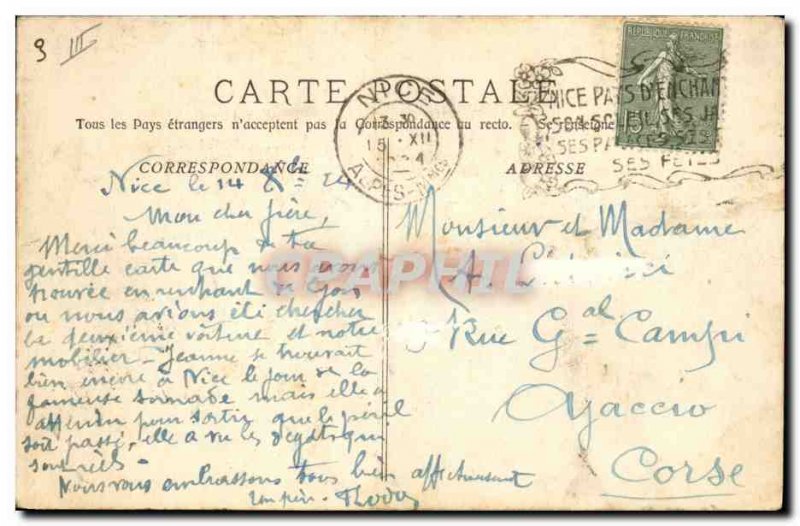 9 III
REPUBLIQUE FRANCAISE
15
CARTE POSTALE
NICE
13 30
15 XII
24
ALPES-MMES
NICE PAYS D'ENCHAN
SON SOLEIL SES JA
SES PA
SES FÊTES
Tous les Pays étrangers n'acceptent pas la Correspondance au recto. Se renseigne
CORRESPONDANCE
ADRESSE
Nice le 14 Xbre 24
Mon cher frère,
Merci beaucoup de ta
gentille carte que nous avons
trouvée en rentrant de
ou nous avions été chercher
la deuxième voiture et notre
mobilier - Jeanne se trouvait
bien encore à Nice le jour de la
fameuse tornade mais elle a
attendu pour sortir que le péril
soit passé, elle a vu les dégâts qui
sont réels -
Nous vous embrassons tous bien affectueusement
Ton frère -
Monsieur et Madame
A.
Rue Gal Campi
Ajaccio
Corse
CARAPHIL